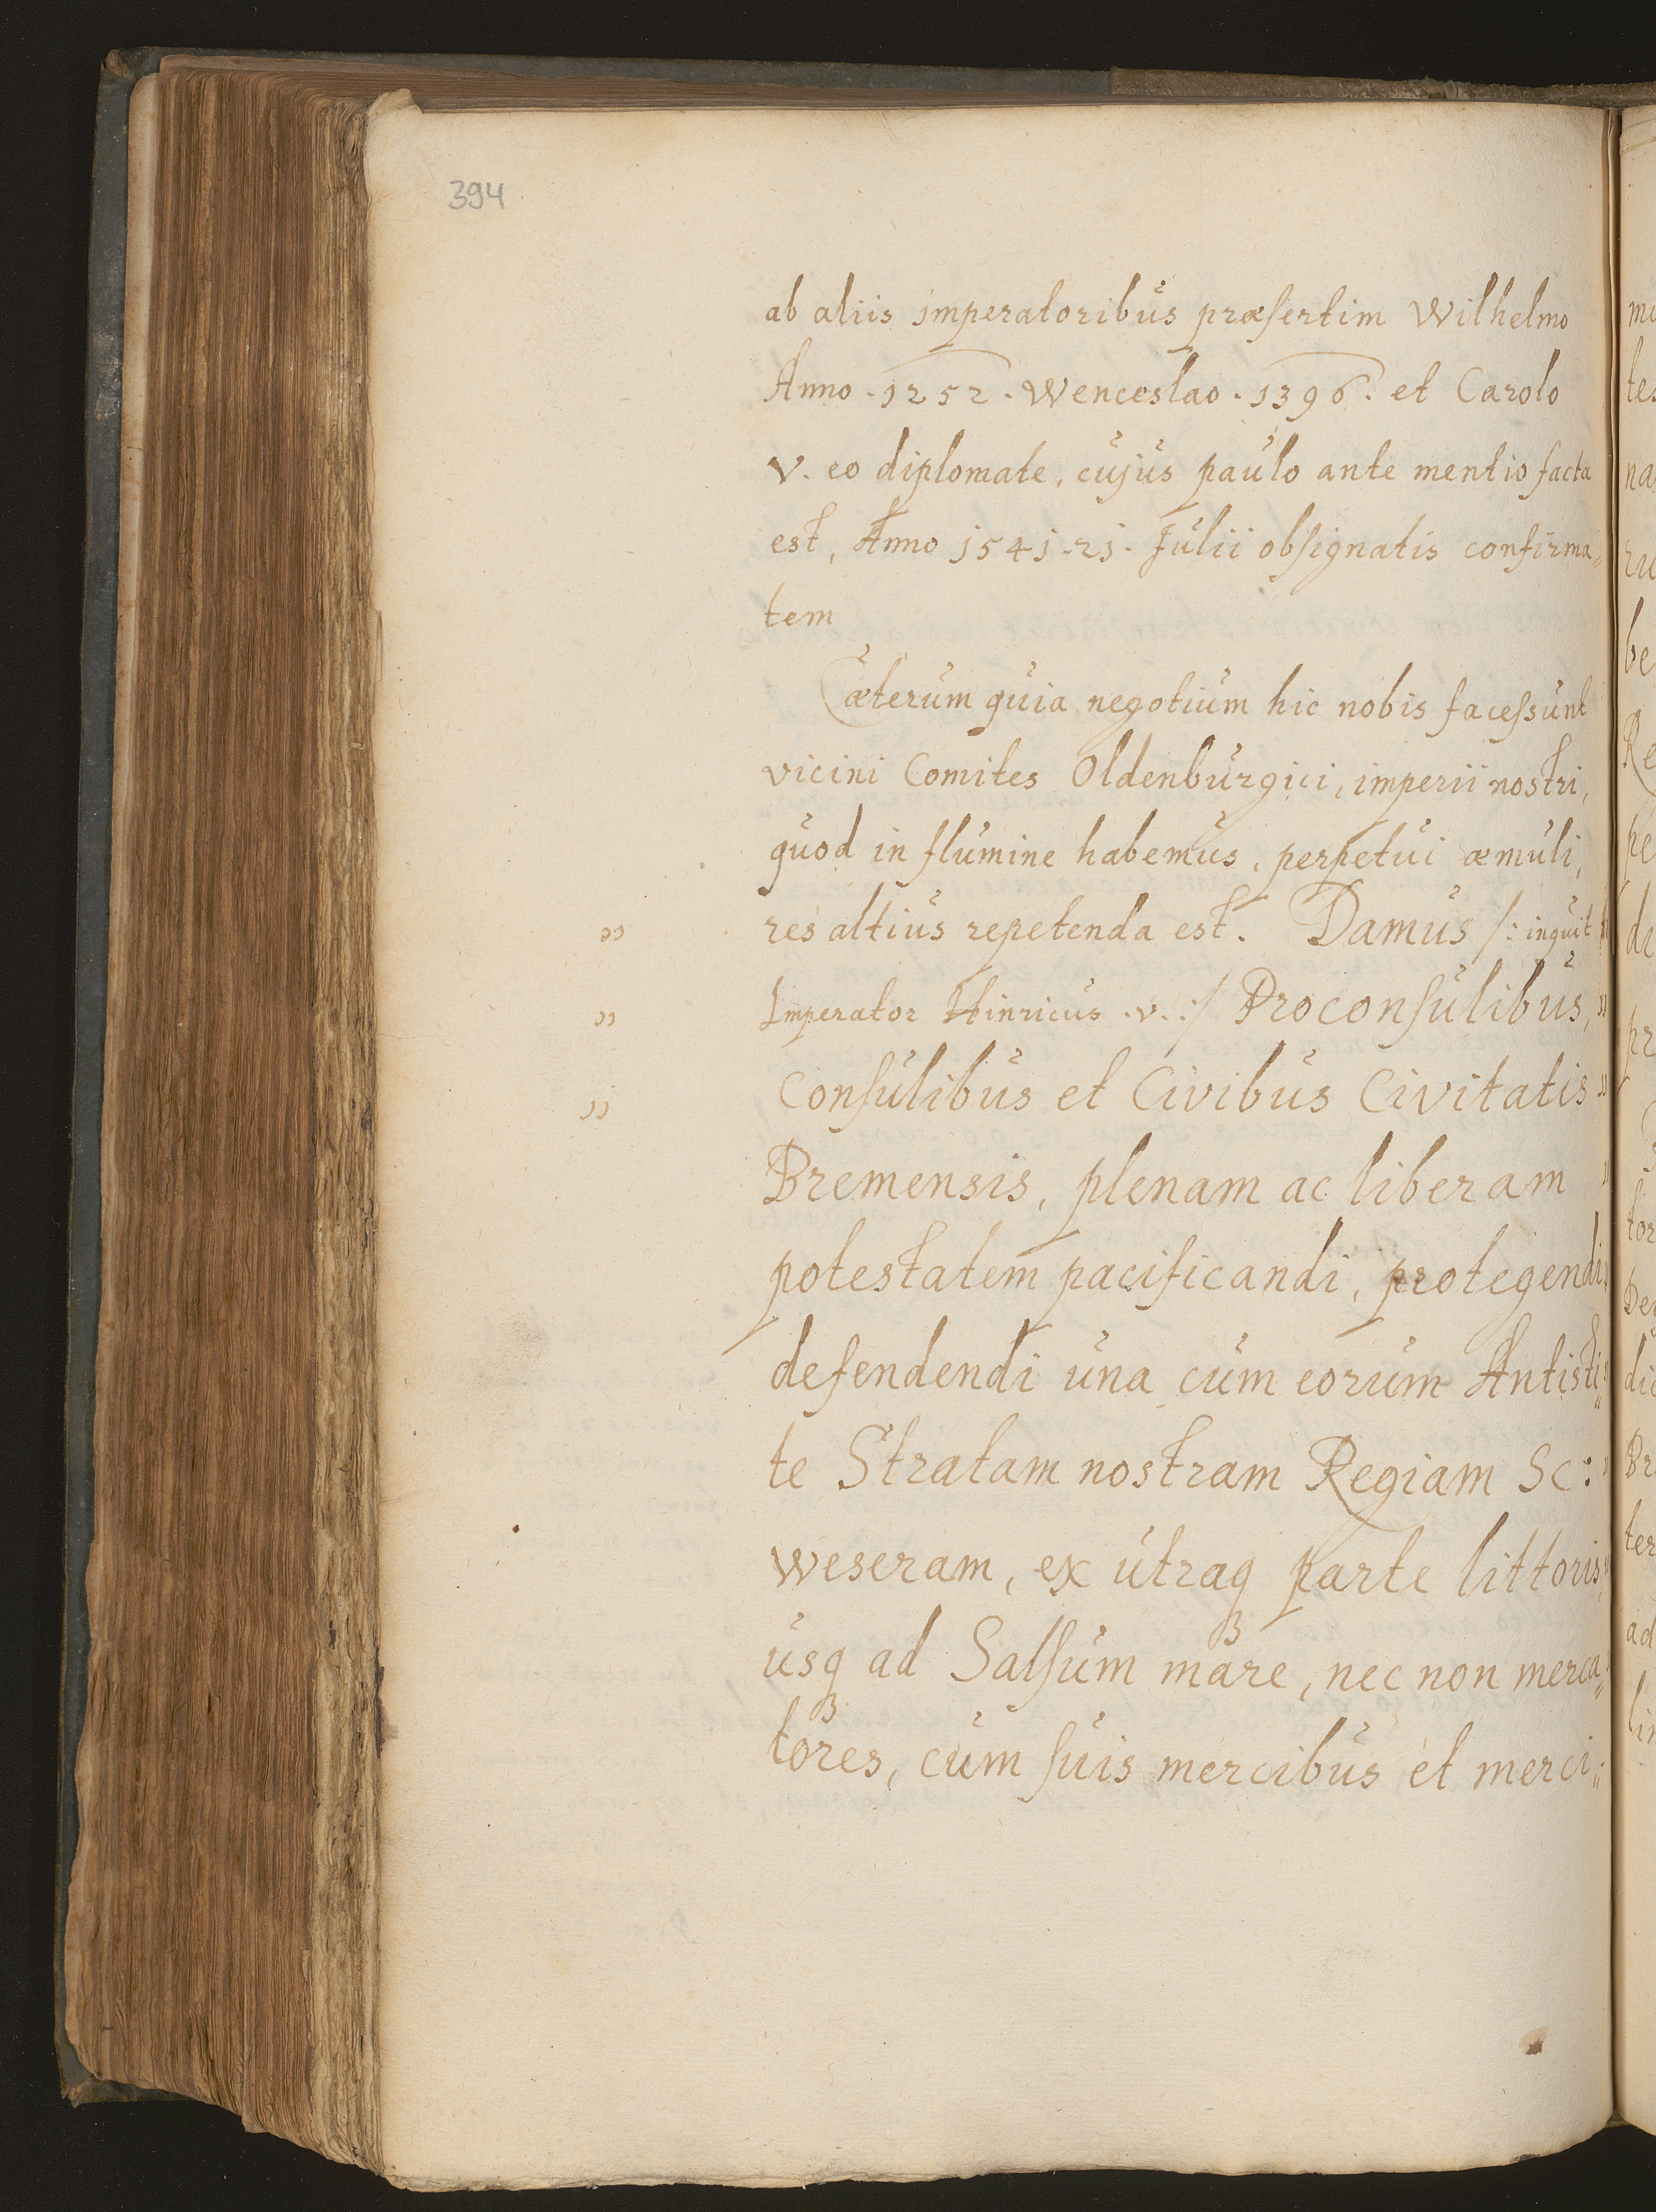 394
ab aliis imperatoribus præsertim Wilhelmo
Anno . 1252 . Wenceslao . 1396 . et Carolo
V. eo diplomate, cujus paulo ante mentio facta
est, Anno 1541 . 21 . Julii obsignatis confirma„
tem
Cæterum quia negotium hic nobis facessunt
vicini Comites Oldenburgici, imperii nostri,
quod in flumine habemus, perpetui æmuli,
res altius repetenda est. Damus /: inquit
Imperator Hinricus .v. :/ Proconsulibus,
Consulibus et Civibus Civitatis
Bremensis, plenam ac liberam
potestatem pacificandi, protegendi
defendendi una cum eorum Antisti„
te Stratam nostram Regiam Sc:
weseram, ex utraqꝫ parte littoris,
usqꝫ ad Salsum mare, nec non merca„
tores, cum suis mercibus et merci„